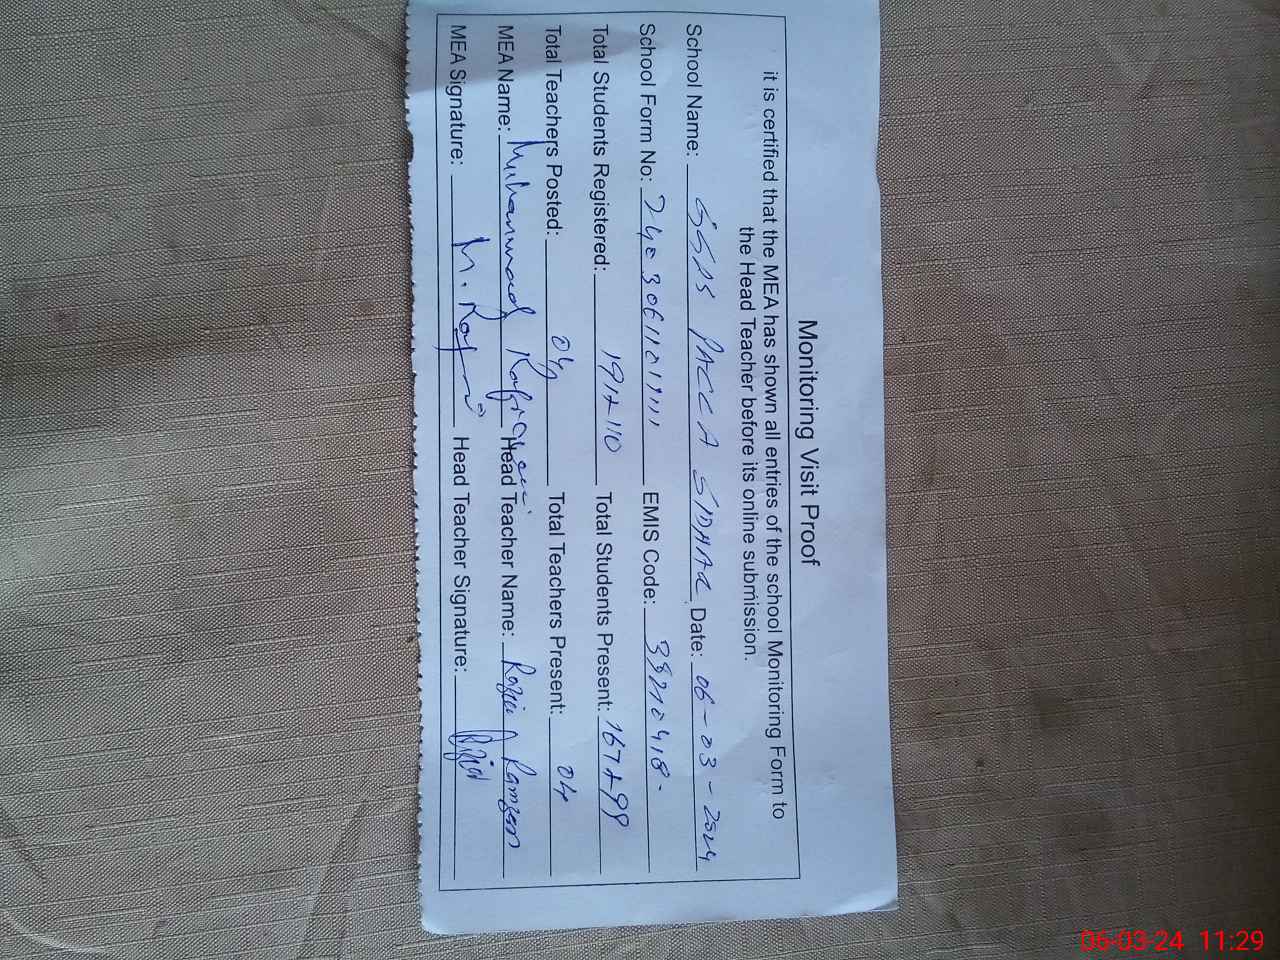 Monitoring Visit Proof
it is certified that the MEA has shown all entries of the school Monitoring Form to
the Head Teacher before its online submission.
School Name: GGPS PACCA SIDHAR Date: 06-03-2024
School Form No: EMIS Code: 38210418-
Total Students Registered: 191+110 Total Students Present: 167+99
Total Teachers Posted: 04 Total Teachers Present: 04
MEA Name: Muhammad Head Teacher Name: Razia Ramzan
MEA Signature: Head Teacher Signature: Razia
06-03-24 11:29